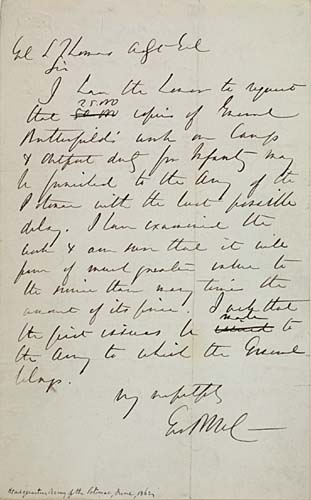 Gel L Thomas Adjt Gel
Sir
I have the honor to request
that 25.00 copies of General
Butterfield's work on Camp
& Outpost duty for Infantry may
be furnished to the Army of the
Potomac with the least possible
delay. I have examined the
work & am sure that it will
prove of much greater value to
the service than many times the
amount of its price. I ask that
the first issues be made to
the Army to which the General
belongs.
Very respectfully
Geo B McC
Headquarters Army of the Potomac, June, 1862